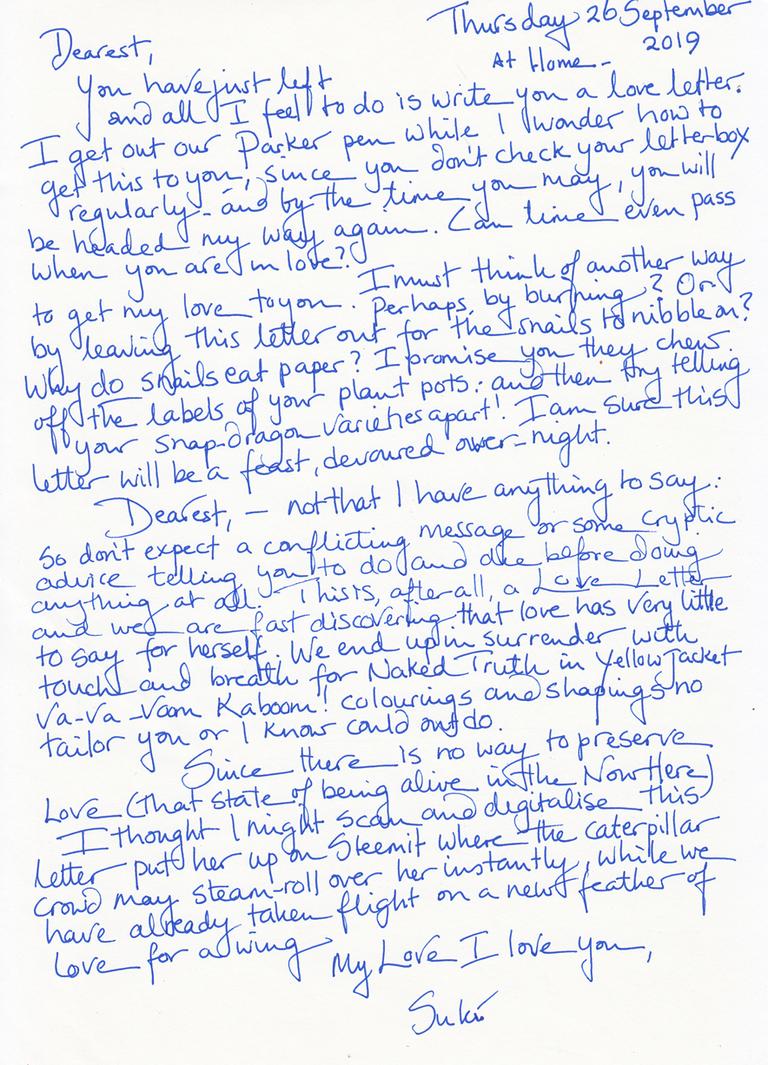 Thursday 26 September
2019
At Home -
Dearest,
You have just left
and all I feel to do is write you a love letter.
I get out our Parker pen while I wonder how to
get this to you, since you don't check your letterbox
regularly - and by the time you may, you will
be headed my way again. Can time even pass
when you are in love?
I must think of another way
to get my love to you. Perhaps, by burning? Or
by leaving this letter out for the snails to nibble on?
Why do snails eat paper? I promise you they chew
off the labels of your plant pots: and then try telling
your snap-dragon varieties apart! I am sure this
letter will be a feast, devoured over-night.
Dearest, - not that I have anything to say:
So don't expect a conflicting message or some cryptic
advice telling you to do and die before doing
anything at all. This is, after all, a Love Letter
and we are fast discovering that love has very little
to say for herself. We end up in surrender with
touch and breath for Naked Truth in Yellow Jacket
Va-Va-Voom Kaboom! colourings and shapings no
tailor you or I know could do.
Since there is no way to preserve
Love (that state of being alive in the Now Here)
I thought I might scan and digitalise this
letter put her up on Steemit where the caterpillar
crowd may steam-roll over her instantly, while we
have already taken flight on a new feather of
love for a wing
My Love I love you,
Suki